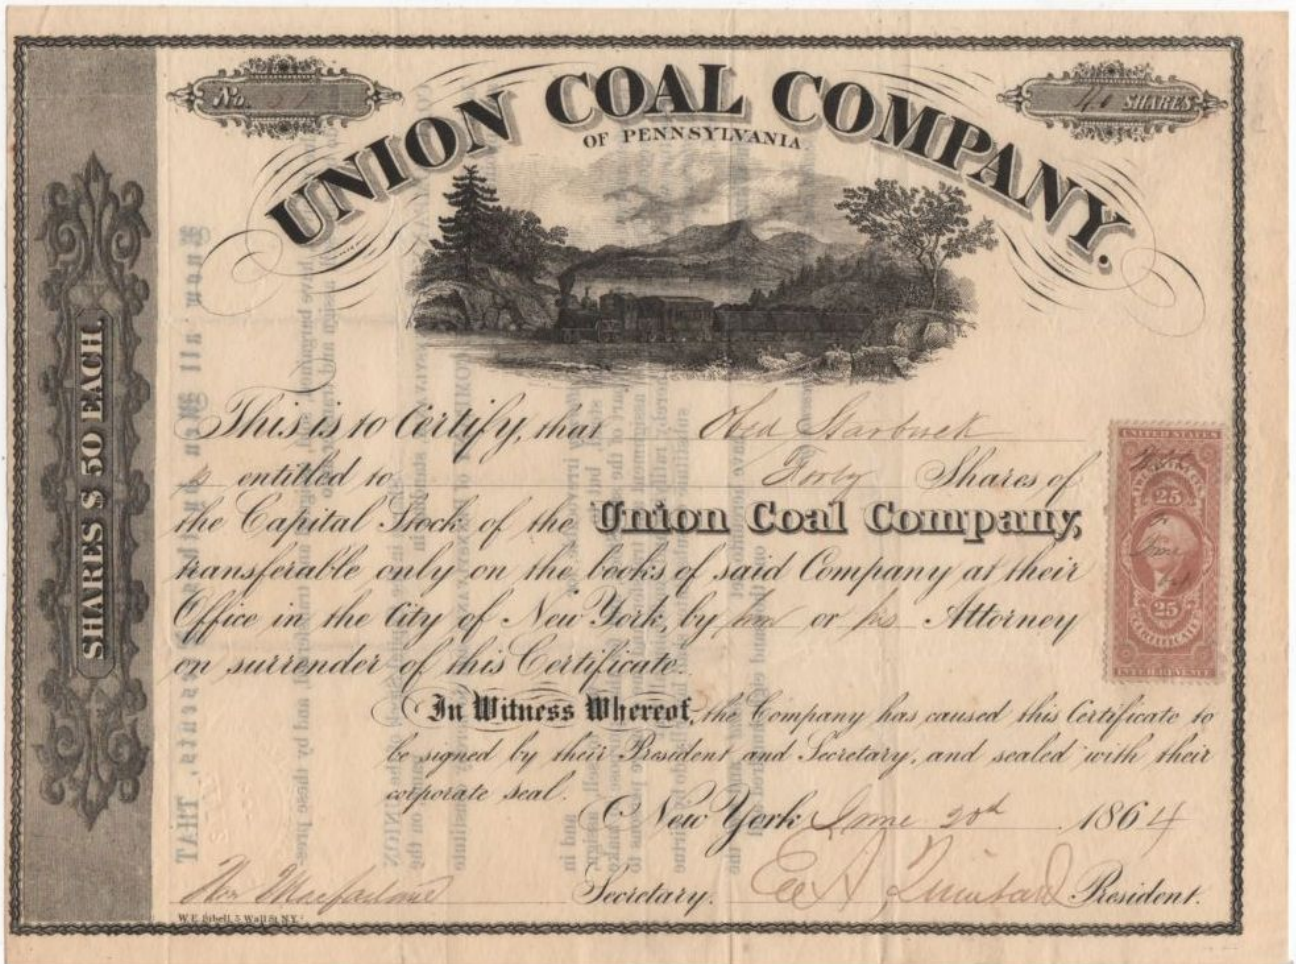 No. 51
40 SHARES
UNION COAL COMPANY.
OF PENNSYLVANIA
SHARES $ 50 EACH.
This is to Certify, that Obed Starbuck
is entitled to Forty Shares of
the Capital Stock of the Union Coal Company,
transferable only on the books of said Company at their
Office in the City of New York, by him or his Attorney
on surrender of this Certificate.
In Witness Whereof, the Company has caused this Certificate to
be signed by their President and Secretary, and sealed with their
corporate seal.
New York June 20th 1864
Wm Macfarlane Secretary. President.
W.E. Sibell, 5 Wall St. N.Y.
UNITED STATES
25
June
25
CERTIFICATE
INTER. REVENUE